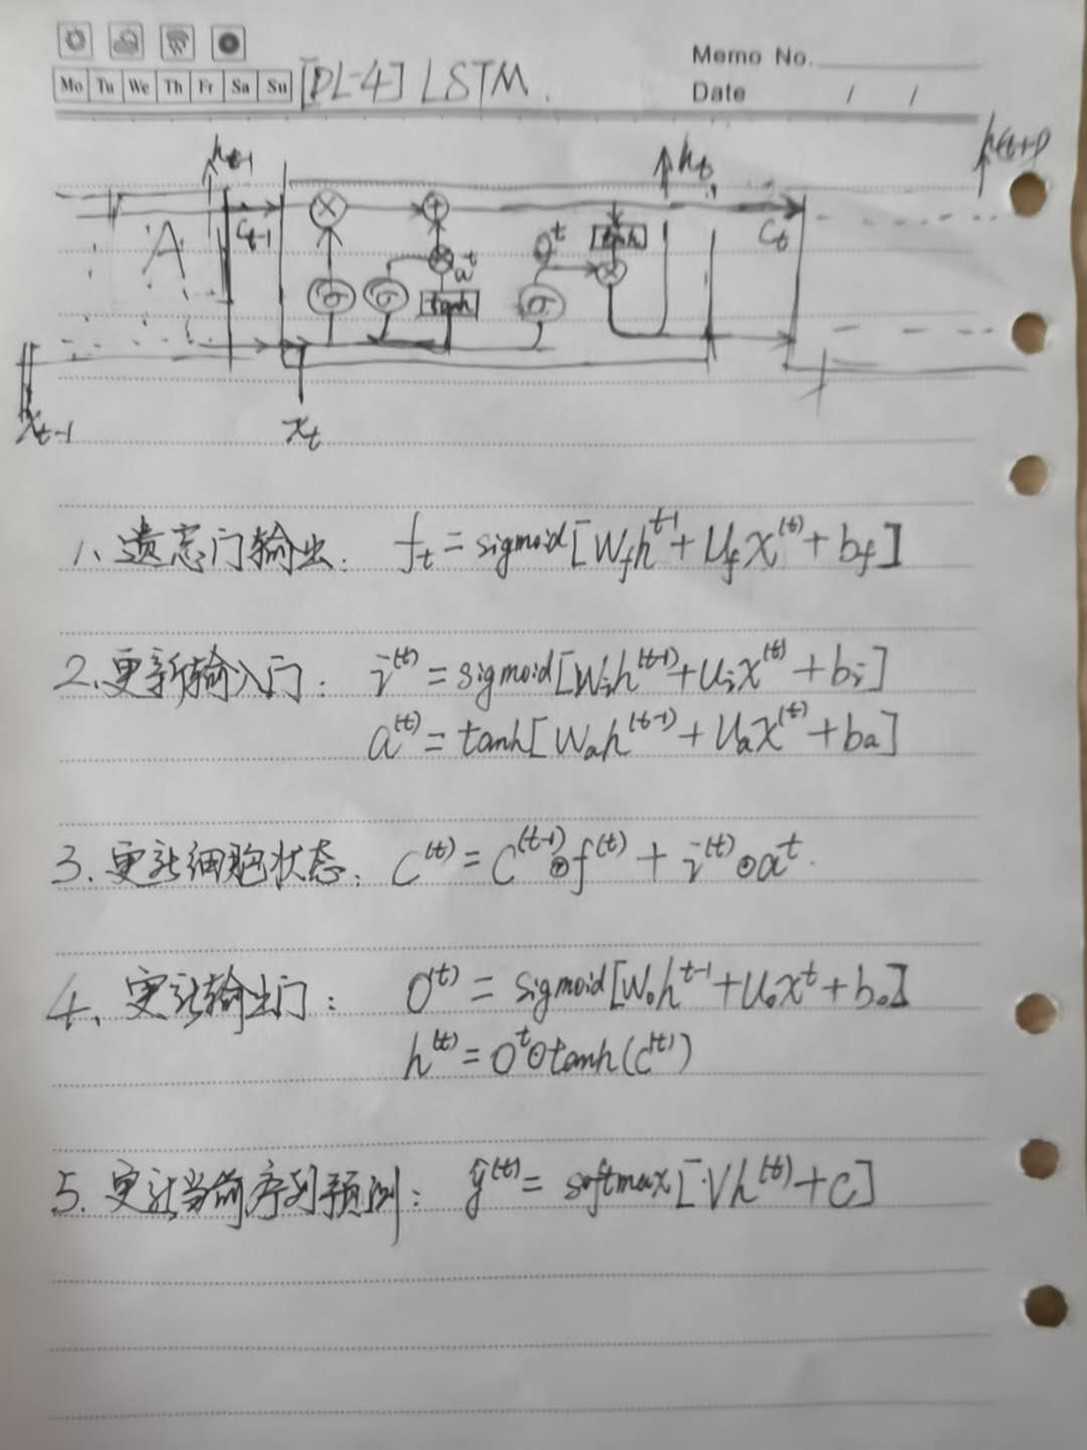 Memo No.
Mo Tu We Th Fr Sa Su [DL-4] LSTM.
Date / /
h_{t-1} h_t h_{(t+1)}
A C_{t-1} C_t
O^t a^t tanh
σ σ tanh σ
x_{t-1} x_t
1、遗忘门输出: f_t = sigmoid[W_f h^{t-1} + U_f x^{(t)} + b_f]
2、更新输入门: i^{(t)} = sigmoid[W_i h^{(t-1)} + U_i x^{(t)} + b_i]
a^{(t)} = tanh[W_a h^{(t-1)} + U_a x^{(t)} + b_a]
3、更新细胞状态: C^{(t)} = C^{(t-1)} ⊙ f^{(t)} + i^{(t)} ⊙ a^t.
4、更新输出门: O^{(t)} = sigmoid[W_o h^{t-1} + U_o x^t + b_o]
h^{(t)} = O^t ⊙ tanh(C^{(t)})
5、更新当前序列预测: ŷ^{(t)} = softmax[Vh^{(t)} + C]